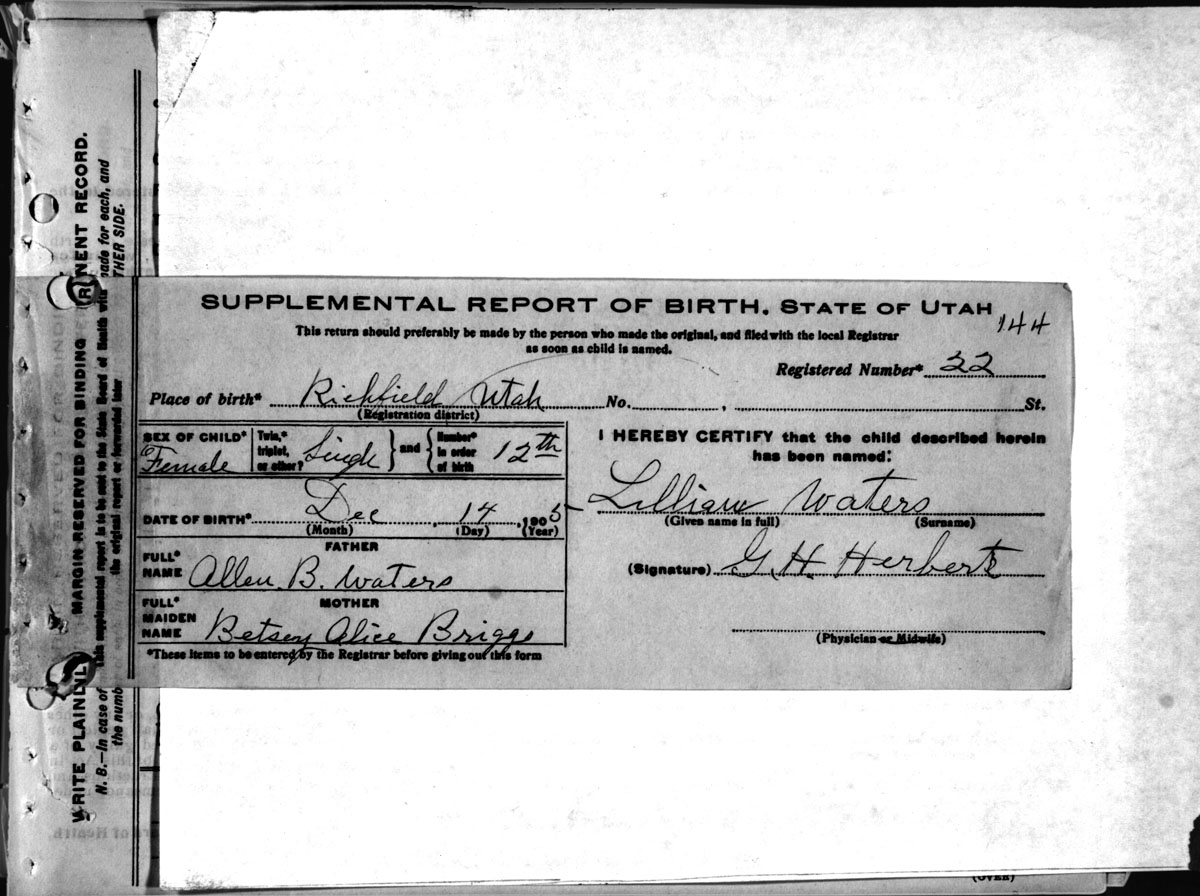 SUPPLEMENTAL REPORT OF BIRTH. STATE OF UTAH
144
This return should preferably be made by the person who made the original, and filed with the local Registrar
as soon as child is named.
Registered Number* 22
Place of birth* Richfield Utah No. , St.
(Registration district)
SEX OF CHILD* Female
Twin,* triplet, or other? Singl
and
Number* in order of birth 12th
DATE OF BIRTH* Dec , 14 , 1905
(Month) (Day) (Year)
FATHER
FULL* NAME Allen B. Waters
MOTHER
FULL* MAIDEN NAME Betsey Alice Briggs
*These items to be entered by the Registrar before giving out this form
I HEREBY CERTIFY that the child described herein
has been named:
Lillian Waters
(Given name in full) (Surname)
(Signature) G. H. Herbert
(Physician or Midwife)
WRITE PLAINL MARGIN RESERVED FOR BINDING NENT RECORD.
N. B.—In case of this supplemental report is to be sent to the State Board of Health made for each, and
the numb the original report or forwarded later THER SIDE.
ard of Health.
(OVER)